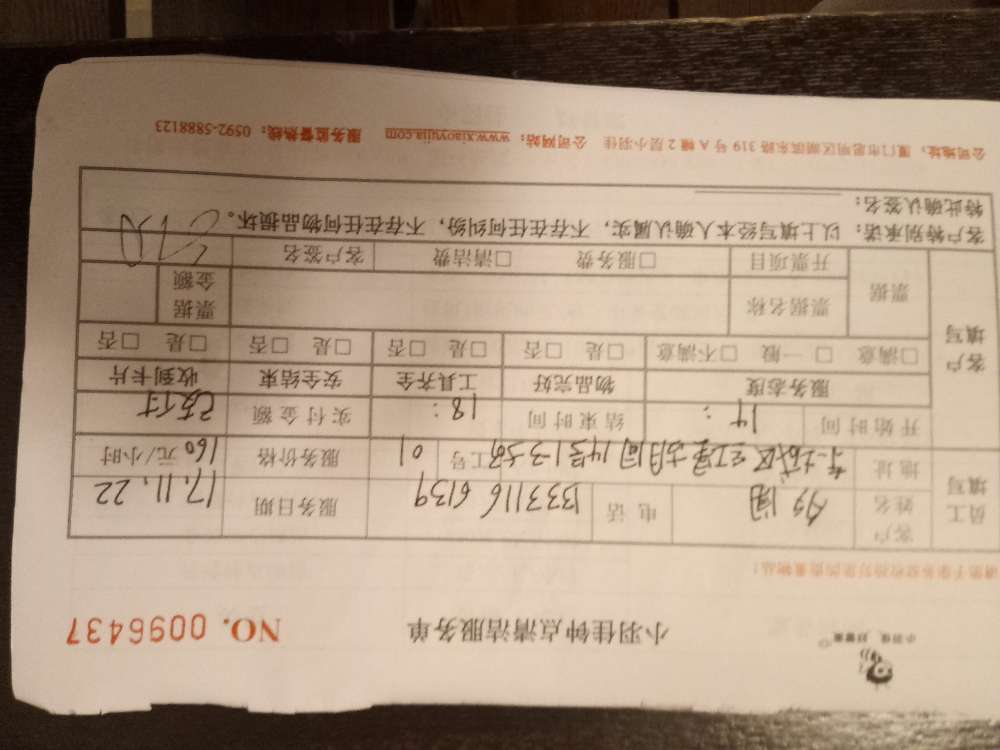 小羽佳 好管家
小羽佳钟点清洁服务单 NO. 0096437
请您于服务前收拾好您的贵重物品！
员工填写 客户姓名 电话 13331166139 服务日期 17.11.22
地址 工号 01 服务价格 160 元/小时
开始时间 14: 结束时间 18: 实付金额 已支付
客户填写 服务态度 物品完好 工具齐全 安全结束 收到卡片
□满意 □一般 □不满意 □是 □否 □是 □否 □是 □否 □是 □否
票据 票据名称 票据金额
开票项目 □服务费 □清洁费 客户签名
客户特别承诺：以上填写经本人确认属实，不存在任何纠纷，不存在任何物品损坏。
特此确认签名：
公司地址：厦门市思明区湖滨东路 319 号 A 幢 2 层小羽佳 公司网站：www.xiaoyujia.com 服务监督热线：0592-5888123